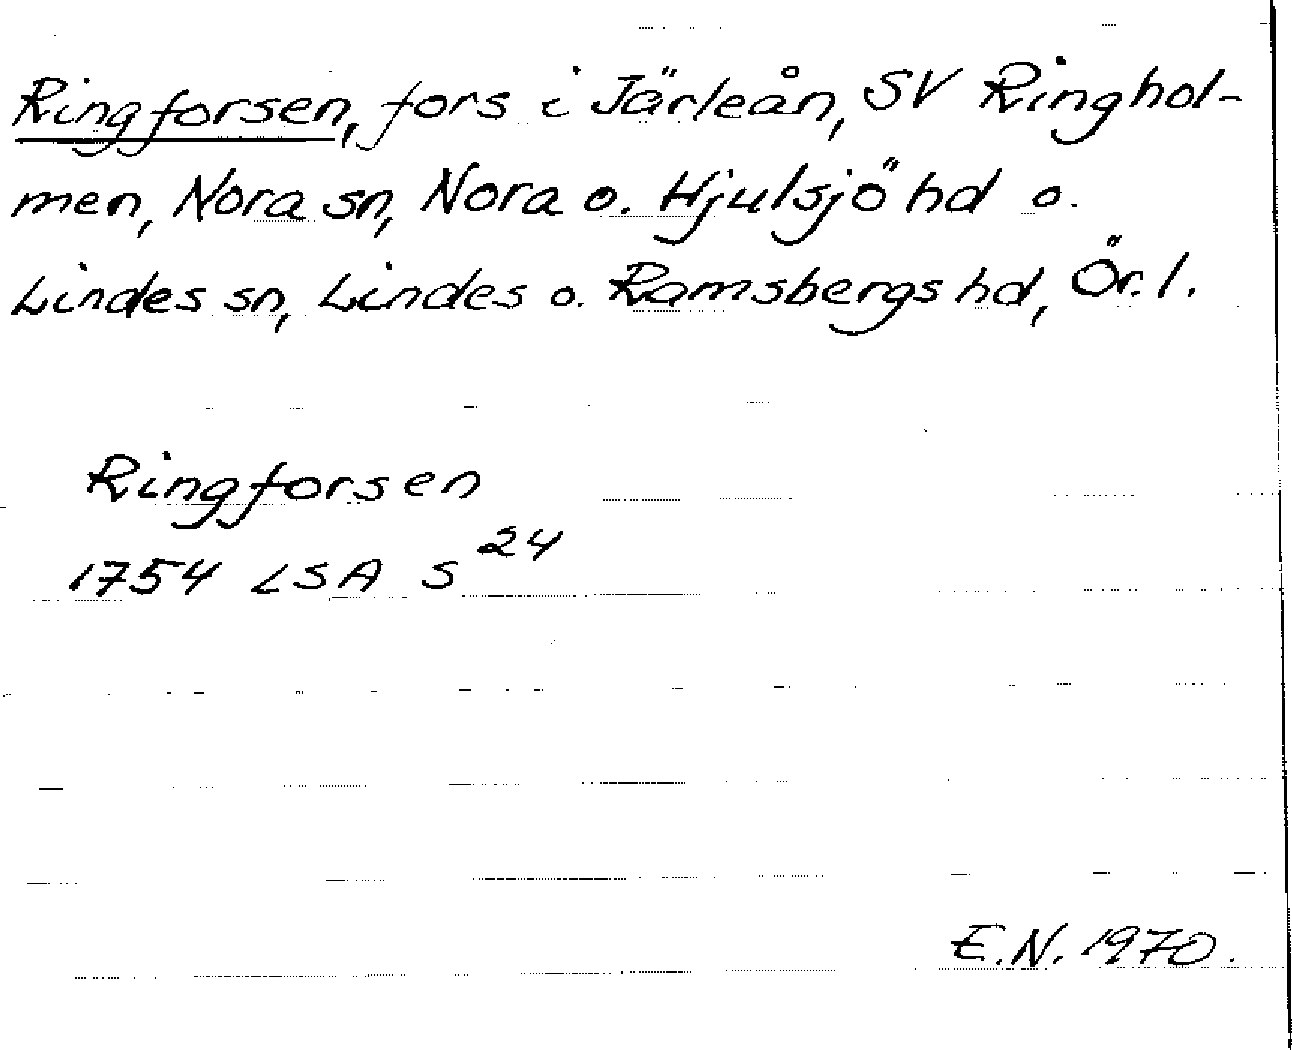 Ringforsen, fors i Järleån, SV Ringhol-
men, Nora sn, Nora o. Hjulsjö hd o.
Lindes sn, Lindes o. Ramsbergs hd, Ör. l.
Ringforsen
1754 LSA S 24
E.N. 1970.